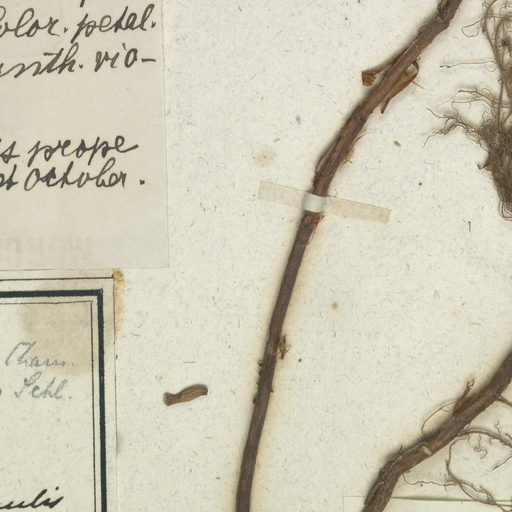 color. petal.
anth. vio-
prope
October.
Cham.
Schl.